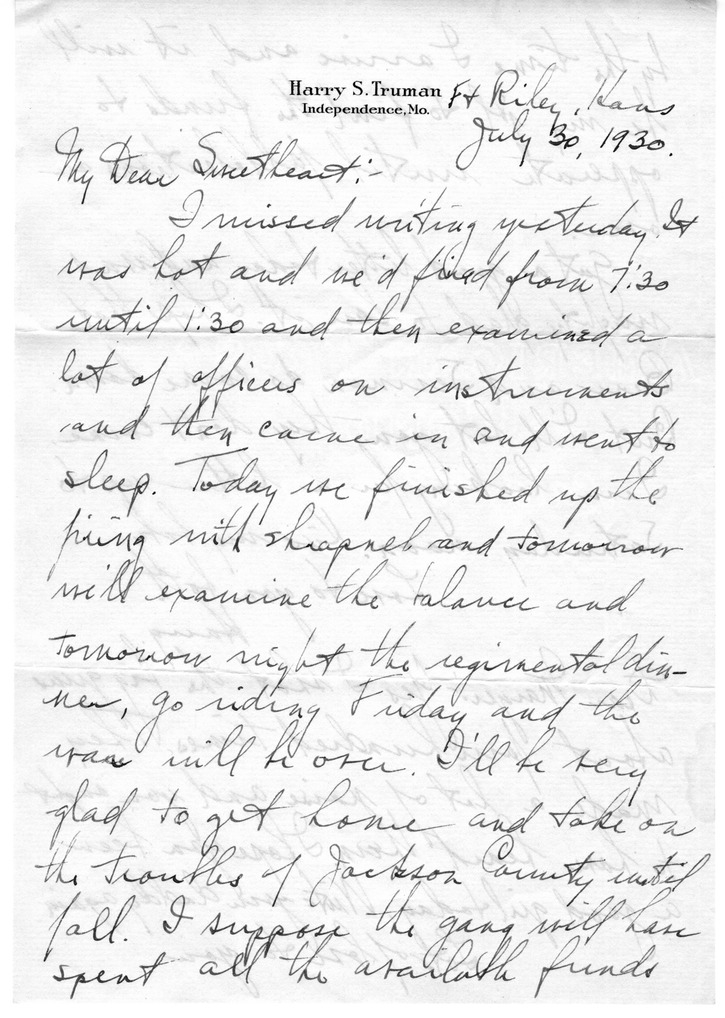 Harry S. Truman
Independence, Mo.
Ft Riley, Kans
July 30, 1930.
My Dear Sweetheart:-
I missed writing yesterday. It
was hot and we'd fired from 7:30
until 1:30 and then examined a
lot of officers on instruments
and then came in and went to
sleep. Today we finished up the
firing with shrapnel and tomorrow
will examine the balance and
tomorrow night the regimental din-
ner, go riding Friday and the
war will be over. I'll be very
glad to get home and take on
the troubles of Jackson County until
fall. I suppose the gang will have
spent all the available funds